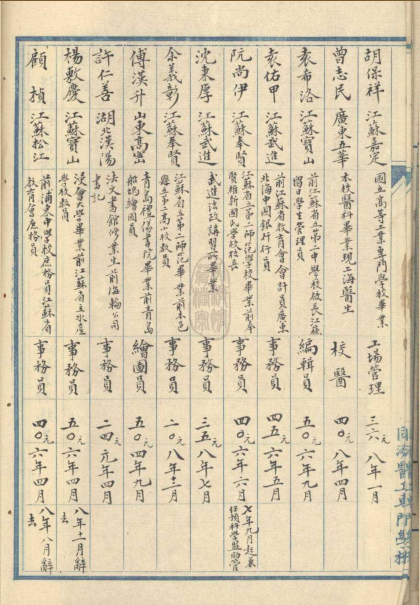 胡保祥 江蘇嘉定 國立高等工業專門學校畢業 工場管理 三六元 八年一月
曾志民 廣東五華 本校醫科畢業現上海醫生 校醫 四〇元 八年四月
袁希洛 江蘇寶山 前江蘇省立第二中學校校長江蘇留日學生管理員 編輯員 五〇元 六年九月
袁佑甲 江蘇武進 前江蘇省教育會會計員廣東北海中國銀行行員 事務員 四五元 六年五月
阮尚伊 江蘇奉賢 江蘇省立第二師範學校畢業前奉賢維新國民學校校長 事務員 四〇元 六年六月 七年九月起兼任預科學監助管
沈東厚 江蘇武進 武進法政講習所畢業 事務員 三五元 八年七月
余義彰 江蘇奉賢 江蘇省立第二師範畢業前本邑縣立第二高小校教員 事務員 二〇元 八年十二月
傅漢升 山東高密 青島禮賢書院畢業前青島船塢繪圖員 繪圖員 五〇元 四年九月
許仁善 湖北漢陽 法文書館修業生前海輪公司書記 事務員 二四元 元年四月
楊敷慶 江蘇寶山 浸會大學畢業前江蘇省立水產學校教員 事務員 五〇元 六年四月 八年十一月辭去
顧楨 江蘇松江 前浦東中學校庶務員江蘇省教育會庶務員 事務員 四〇元 六年四月 八年八月辭去
同濟醫工專門學校